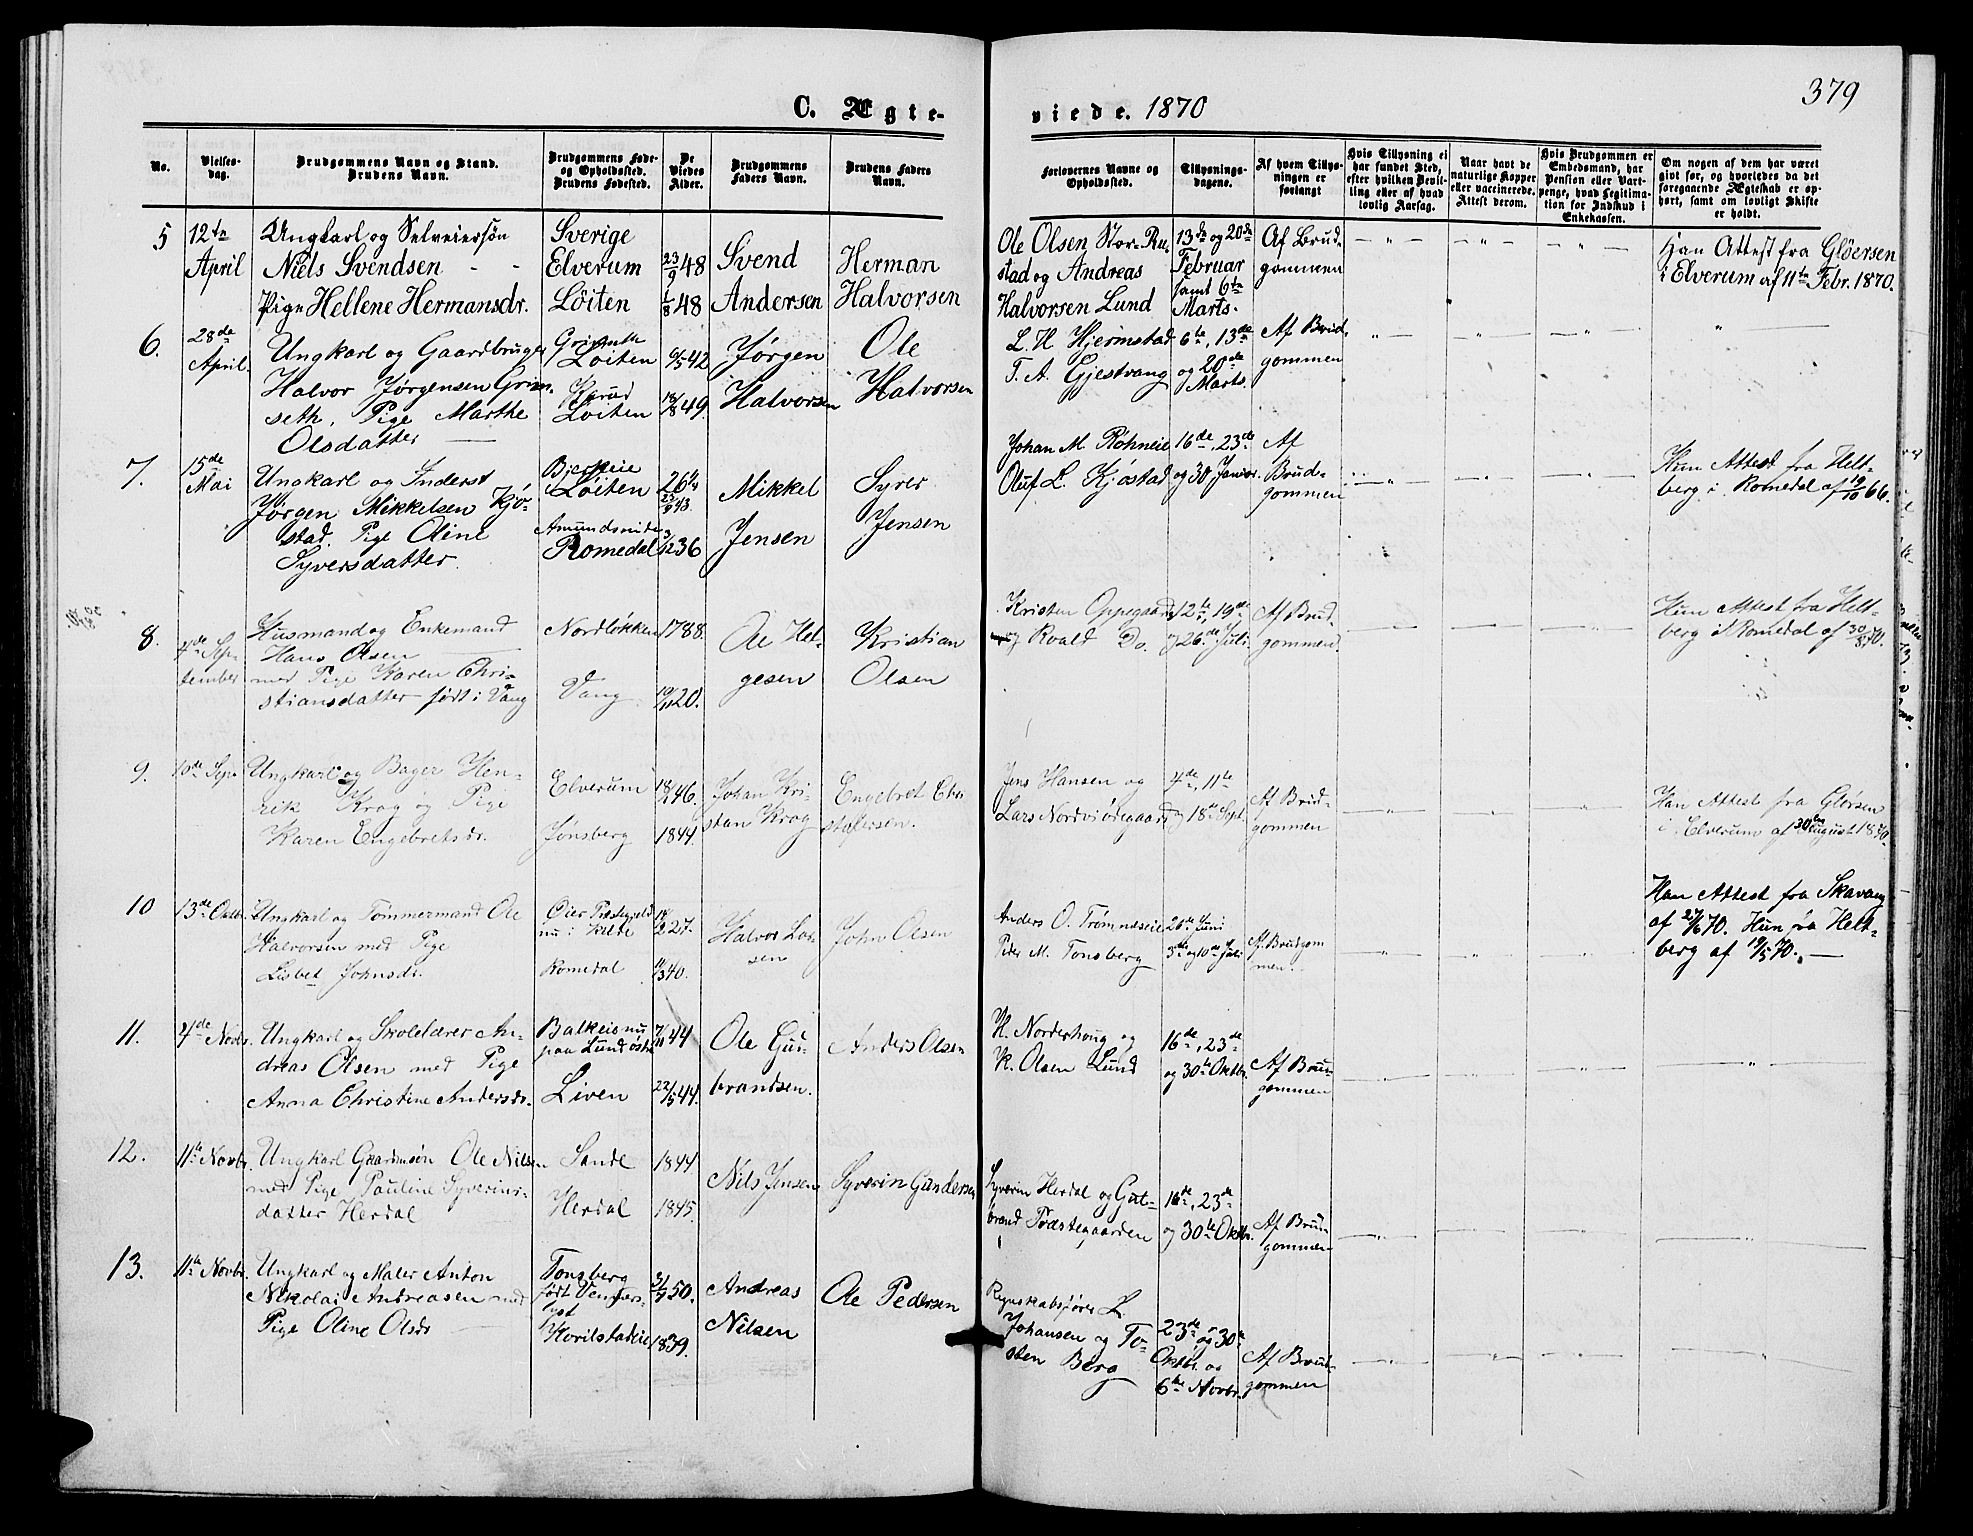 379
C. Ægte-
viede. 1870
No.
Vielses-
dag.
Brudgommens Navn og Stand.
Brudens Navn.
Brudgommens Føde-
og Opholdssted.
Brudens Fødested.
De
Viedes
Alder.
Brudgommens
Faders Navn.
Brudens Faders
Navn.
Forlovernes Navne og
Opholdssted.
Tillysnings-
dagene.
Af hvem Tillys-
ningen er
forlangt
Hvis Tillysning ei
har fundet Sted,
efter hvilken Bevil-
ling eller af hvad
lovlig Aarsag.
Naar havt de
naturlige Kopper
eller vaccinerede.
Attest derom.
Hvis Brudgommen er
Embedsmand, har
Pension eller Vart-
penge, hvad Legitima-
tion for Indskud i
Enkekassen.
Om nogen af dem har været
givt før, og hvorledes da det
foregaaende Ægteskab er op-
hørt, samt om lovligt Skifte
er holdt.
5
12te
April
Ungkarl og Selveiersøn
Niels Svendsen - -
Pige Hellene Hermansdr.
Sverige
Elverum
Löiten
23/9 48
1/8 48
Svend
Andersen
Herman
Halvorsen
Ole Olsen Stor-Ru-
stad og Andreas
Halvorsen Lund
13de og 20de
Februar
samt 6te
Marts.
Af Brud-
gommen
Han Attest fra Glöersen
i Elverum af 11te Febr. 1870.
6.
28de
April.
Ungkarl og Gaardbruger
Halvor Jørgensen Grim-
seth, Pige Marthe
Olsdatter
Løiten
Løiten
6/5 42
18/8 49.
Jørgen
Halvorsen
Ole
Halvorsen
L. H. Hjermstad
T. A. Gjestvang
6te, 13de
og 20de
Marts.
Af Brud-
gommen
7.
15de
Mai
Ungkarl og Inderst
Jørgen Mikkelsen Kjø-
stad. Pige Oline
Syversdatter.
Løiten
Romedal
22/9 43.
3/12 36
Mikkel
Jensen
Syver
Jensen
Johan M. Røhneie
Oluf L. Kjøstad
16de, 23de
og 30 Januar.
Af
Brud-
gommen
Hun Attest fra Helt-
berg i Romedal af 19/10 66.
8.
4de Sep-
tember
Husmand og Enkemand
Hans Olsen
med Pige Karen Chri-
stiansdatter født i Vang
Nordløkken
Vang
1788.
19/11 20.
Ole Hel-
gesen
Kristian
Olsen
Kristen Oppegaard
og Roald Do.
12te, 19de
og 26de Juli.
Af Brud-
gommen.
Hun Attest fra Helt-
berg i Romedal af 30/8 70.
9.
10de Sep.
Ungkarl og Bager Hen-
rik Krog og Pige
Karen Engebretsdr.
Elverum
Jønsberg
18/1 46.
1844.
Johan Kri-
stan Krog
Engebret Chri
stofersen.
Jens Hansen og
Lars Nordviødegaard
4de, 11te
og 18de Sept.
Af Brud-
gommen
Han Attest fra Glørsen
i Elverum af 30te August 1870.
10
13de Oktbr.
Ungkarl og Tømmermand Ole
Halvorsen med Pige
Lisbet Johnsdr.
Øier Præstegjeld
nu i Kilde
Romedal
18/2 27.
11/3 40.
Halvor Lar-
sen
John Olsen
Anders O. Trømnæseie
Peder M. Tonsberg
26de Juni
3de og 10de Juli
Af Brudgom
men.
Han Attest fra Skavang
af 27/6 70. Hun fra Helt-
berg af 19/5 70.
11.
4de Novbr.
Ungkarl og Skolelærer An-
dreas Olsen med Pige
Anna Christine Andersdr.
Balkeie nu
paa Lund østre
Liven
7/11 44
22/5 44.
Ole Gu-
brandsen.
Anders Olsen
K. Norderhoug og
K. Olsen Lund
16de, 23de
og 30te Oktbr.
Af Brud-
gommen
12.
11te Novbr.
Ungkarl Gaardmsøn Ole Nilsen
med Pige Pauline Syverins-
datter Herdal
Sande
Herdal
1844.
1845.
Nils Jensen
Syverin Gundersen
Syverin Herdal og Gul-
brand Præstegaarden
16de, 23de
og 30te Oktbr.
Af Brud-
gommen
13.
11te Novbr.
Ungkarl og Maler Anton
Nikolai Andreasen med
Pige Oline Olsdr
Tonsberg
født Venners-
lyst
Horilstadeie
3/7 50.
1839.
Andreas
Nilsen
Ole Pedersen
Regnskabsfører L.
Johansen og To-
sten Berg
23de og 30te
Oktbr. og
6te Novbr.
Af Brud-
gommen